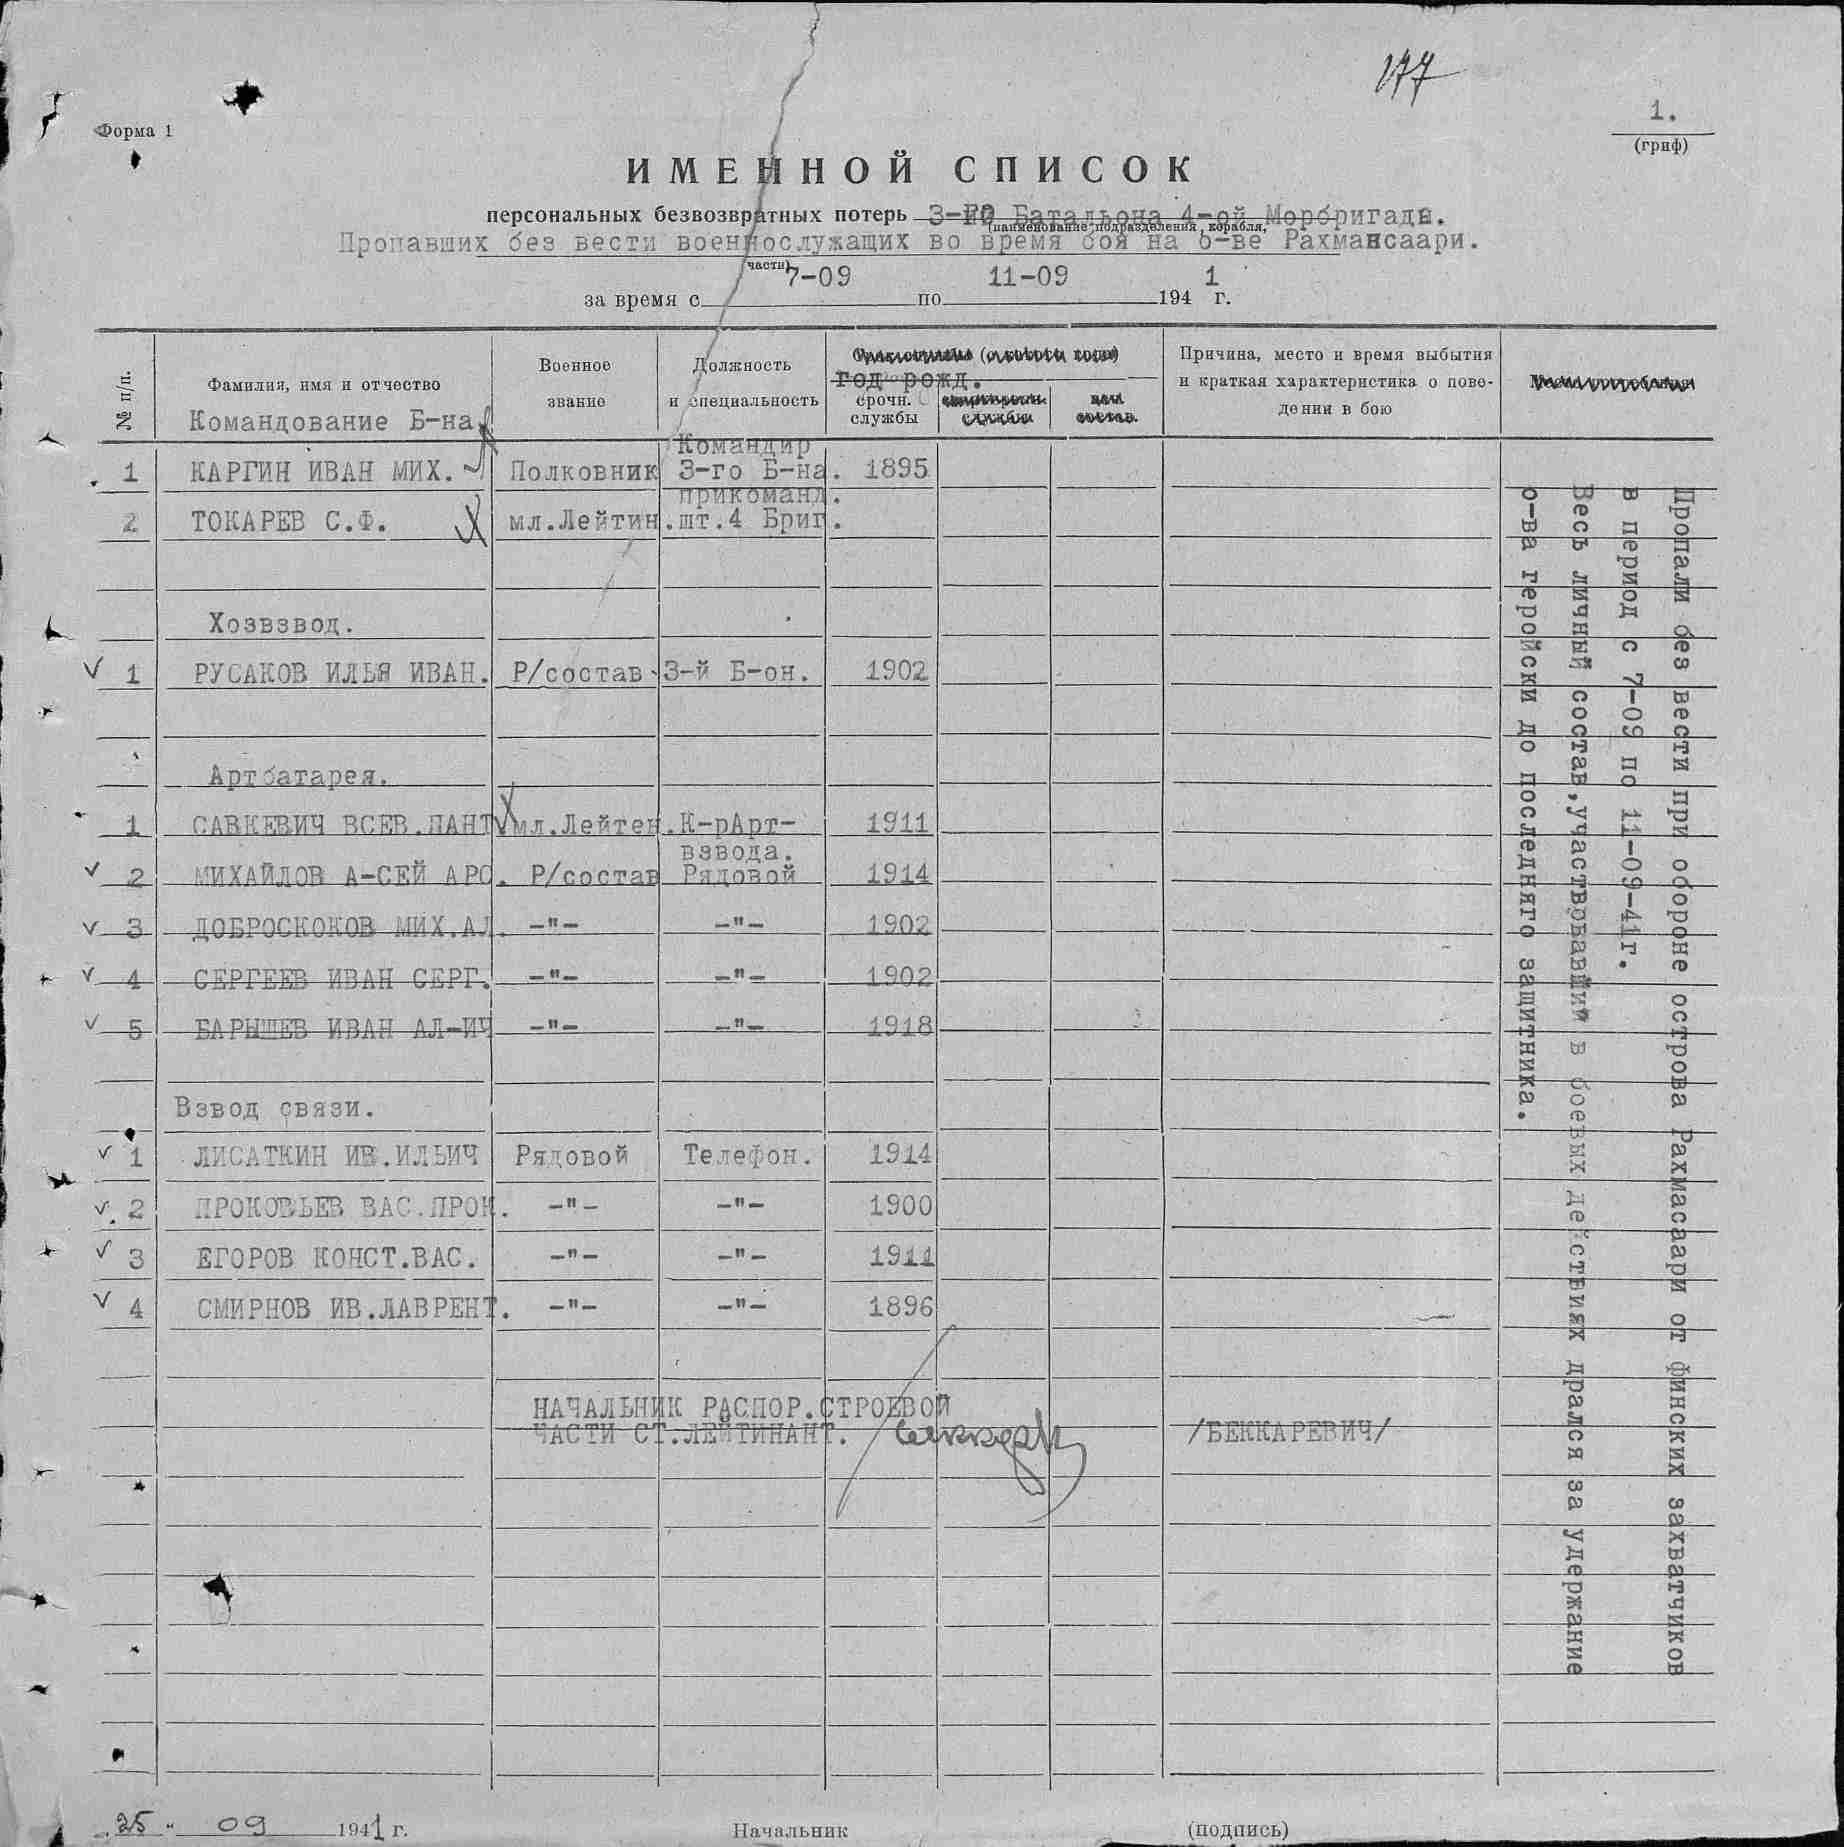 177
Форма 1
1.
(гриф)
ИМЕННОЙ СПИСОК
персональных безвозвратных потерь 3-го Батальона 4-ой Морбригады.
(наименование подразделения, корабля,
Пропавших без вести военнослужащих во время боя на о-ве Рахмансаари.
части)
7-09 11-09 1
за время с по 194 г.
№ п/п.
Фамилия, имя и отчество
Командование Б-на
Военное
звание
Должность
и специальность
год рожд.
срочн.
службы
службы
состав.
Причина, место и время выбытия
и краткая характеристика о пове-
дении в бою
Командир
1 КАРГИН ИВАН МИХ. Полковник 3-го Б-на. 1895
прикоманд.
2 ТОКАРЕВ С.Ф. мл.Лейтин. шт.4 Бриг.
Хозвзвод.
1 РУСАКОВ ИЛЬЯ ИВАН. Р/состав 3-й Б-он. 1902
Артбатарея.
1 САВКЕВИЧ ВСЕВ.ПАНТ мл.Лейтен. К-рАрт- 1911
взвода.
2 МИХАЙЛОВ А-СЕЙ АРС. Р/состав Рядовой 1914
3 ДОБРОСКОКОВ МИХ.АЛ. -"- -"- 1902
4 СЕРГЕЕВ ИВАН СЕРГ. -"- -"- 1902
5 БАРЫШЕВ ИВАН АЛ-ИЧ -"- -"- 1918
Взвод связи.
1 ЛИСАТКИН ИВ.ИЛЬИЧ Рядовой Телефон. 1914
2 ПРОКОВЬЕВ ВАС.ПРОК. -"- -"- 1900
3 ЕГОРОВ КОНСТ.ВАС. -"- -"- 1911
4 СМИРНОВ ИВ.ЛАВРЕНТ. -"- -"- 1896
Пропали без вести при обороне острова Рахмасаари от финских захватчиков
в период с 7-09 по 11-09-41г.
Весь личный состав,участвовавший в боевых действиях дрался за удержание
о-ва геройски до последняго защитника.
НАЧАЛЬНИК РАСПОР.СТРОЕВОЙ
ЧАСТИ СТ.ЛЕЙТИНАНТ. /БЕККАРЕВИЧ/
25 " 09 1941 г. Начальник (подпись)